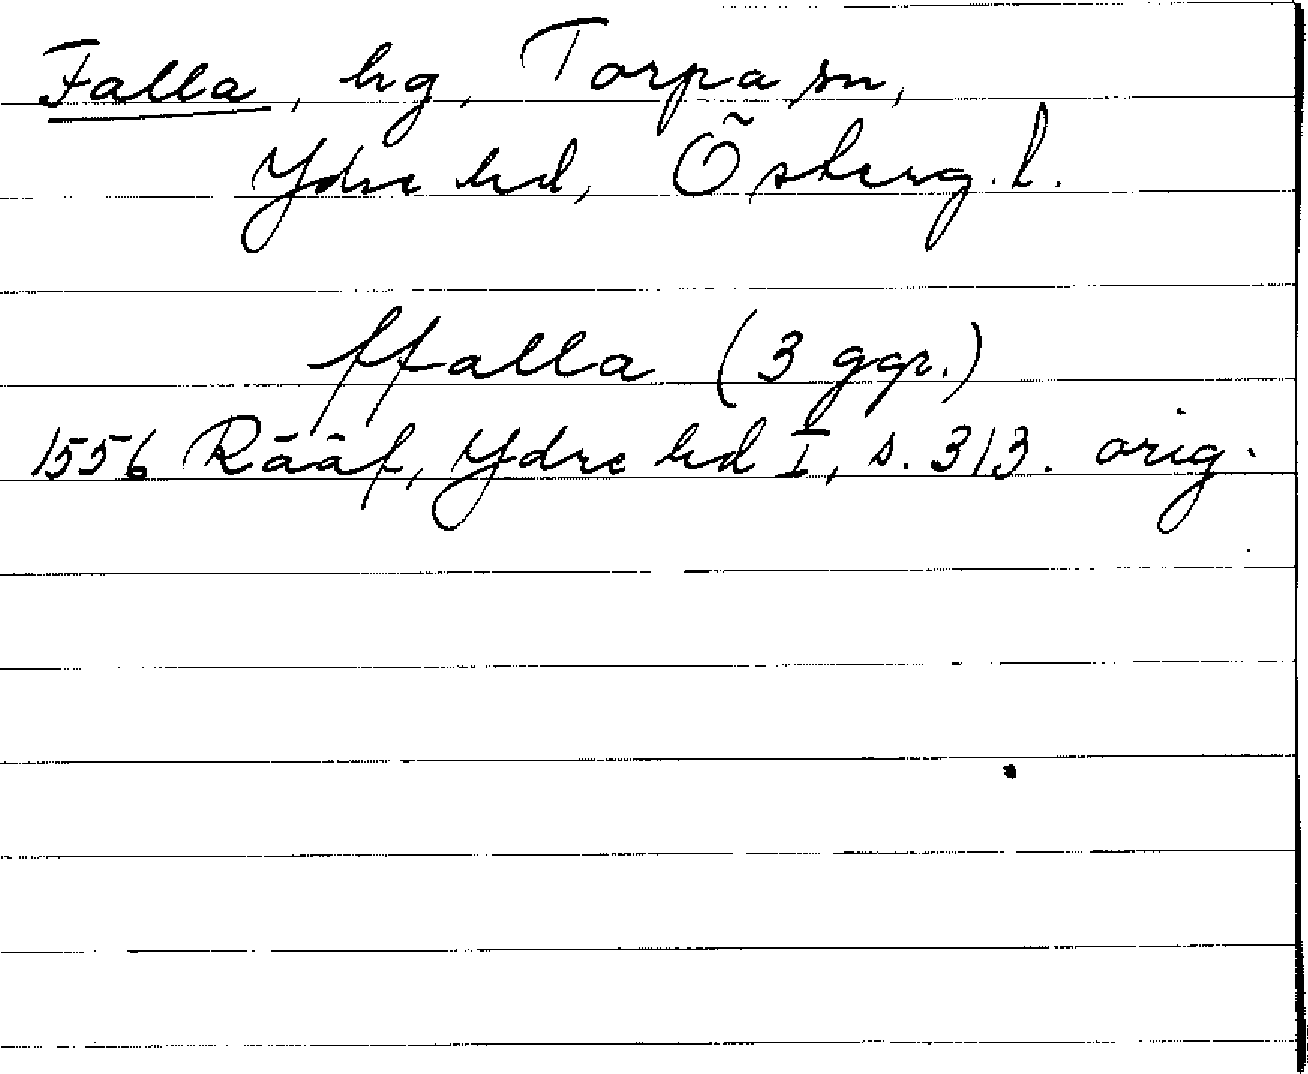 Falla, hg, Torpa sn,
Ydre hd, Österg. l.
ffalla (3 ggr.)
1556 Rääf, Ydre hd I, s. 313. orig.